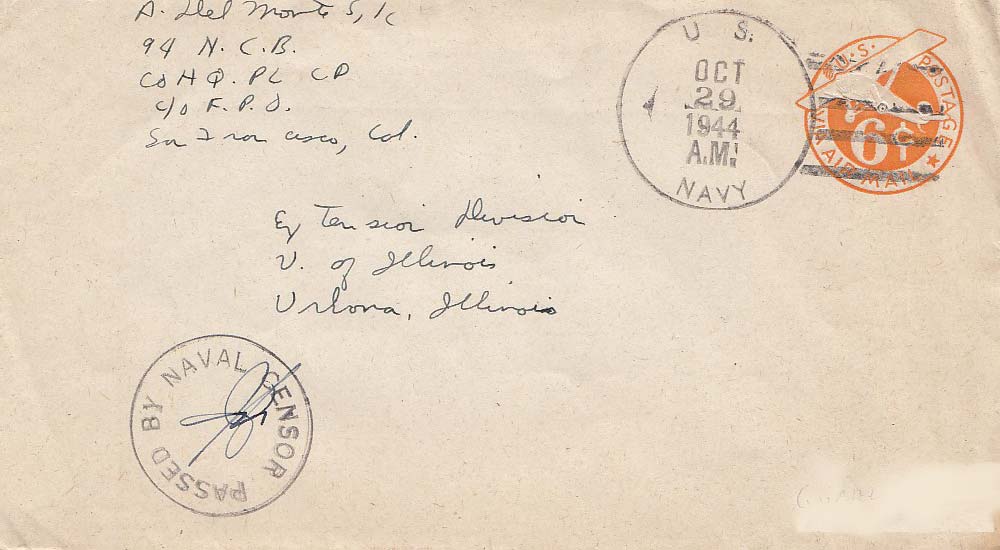 A. Del Monte S 1/c
94 N. C. B.
CO HQ. PL CP
c/o F. P. O.
San Francisco, Cal.
U. S.
OCT
29
1944
A.M.
NAVY
U.S. POSTAGE
6¢
VIA AIR MAIL
Extension Division
U. of Illinois
Urbana, Illinois
PASSED BY NAVAL CENSOR